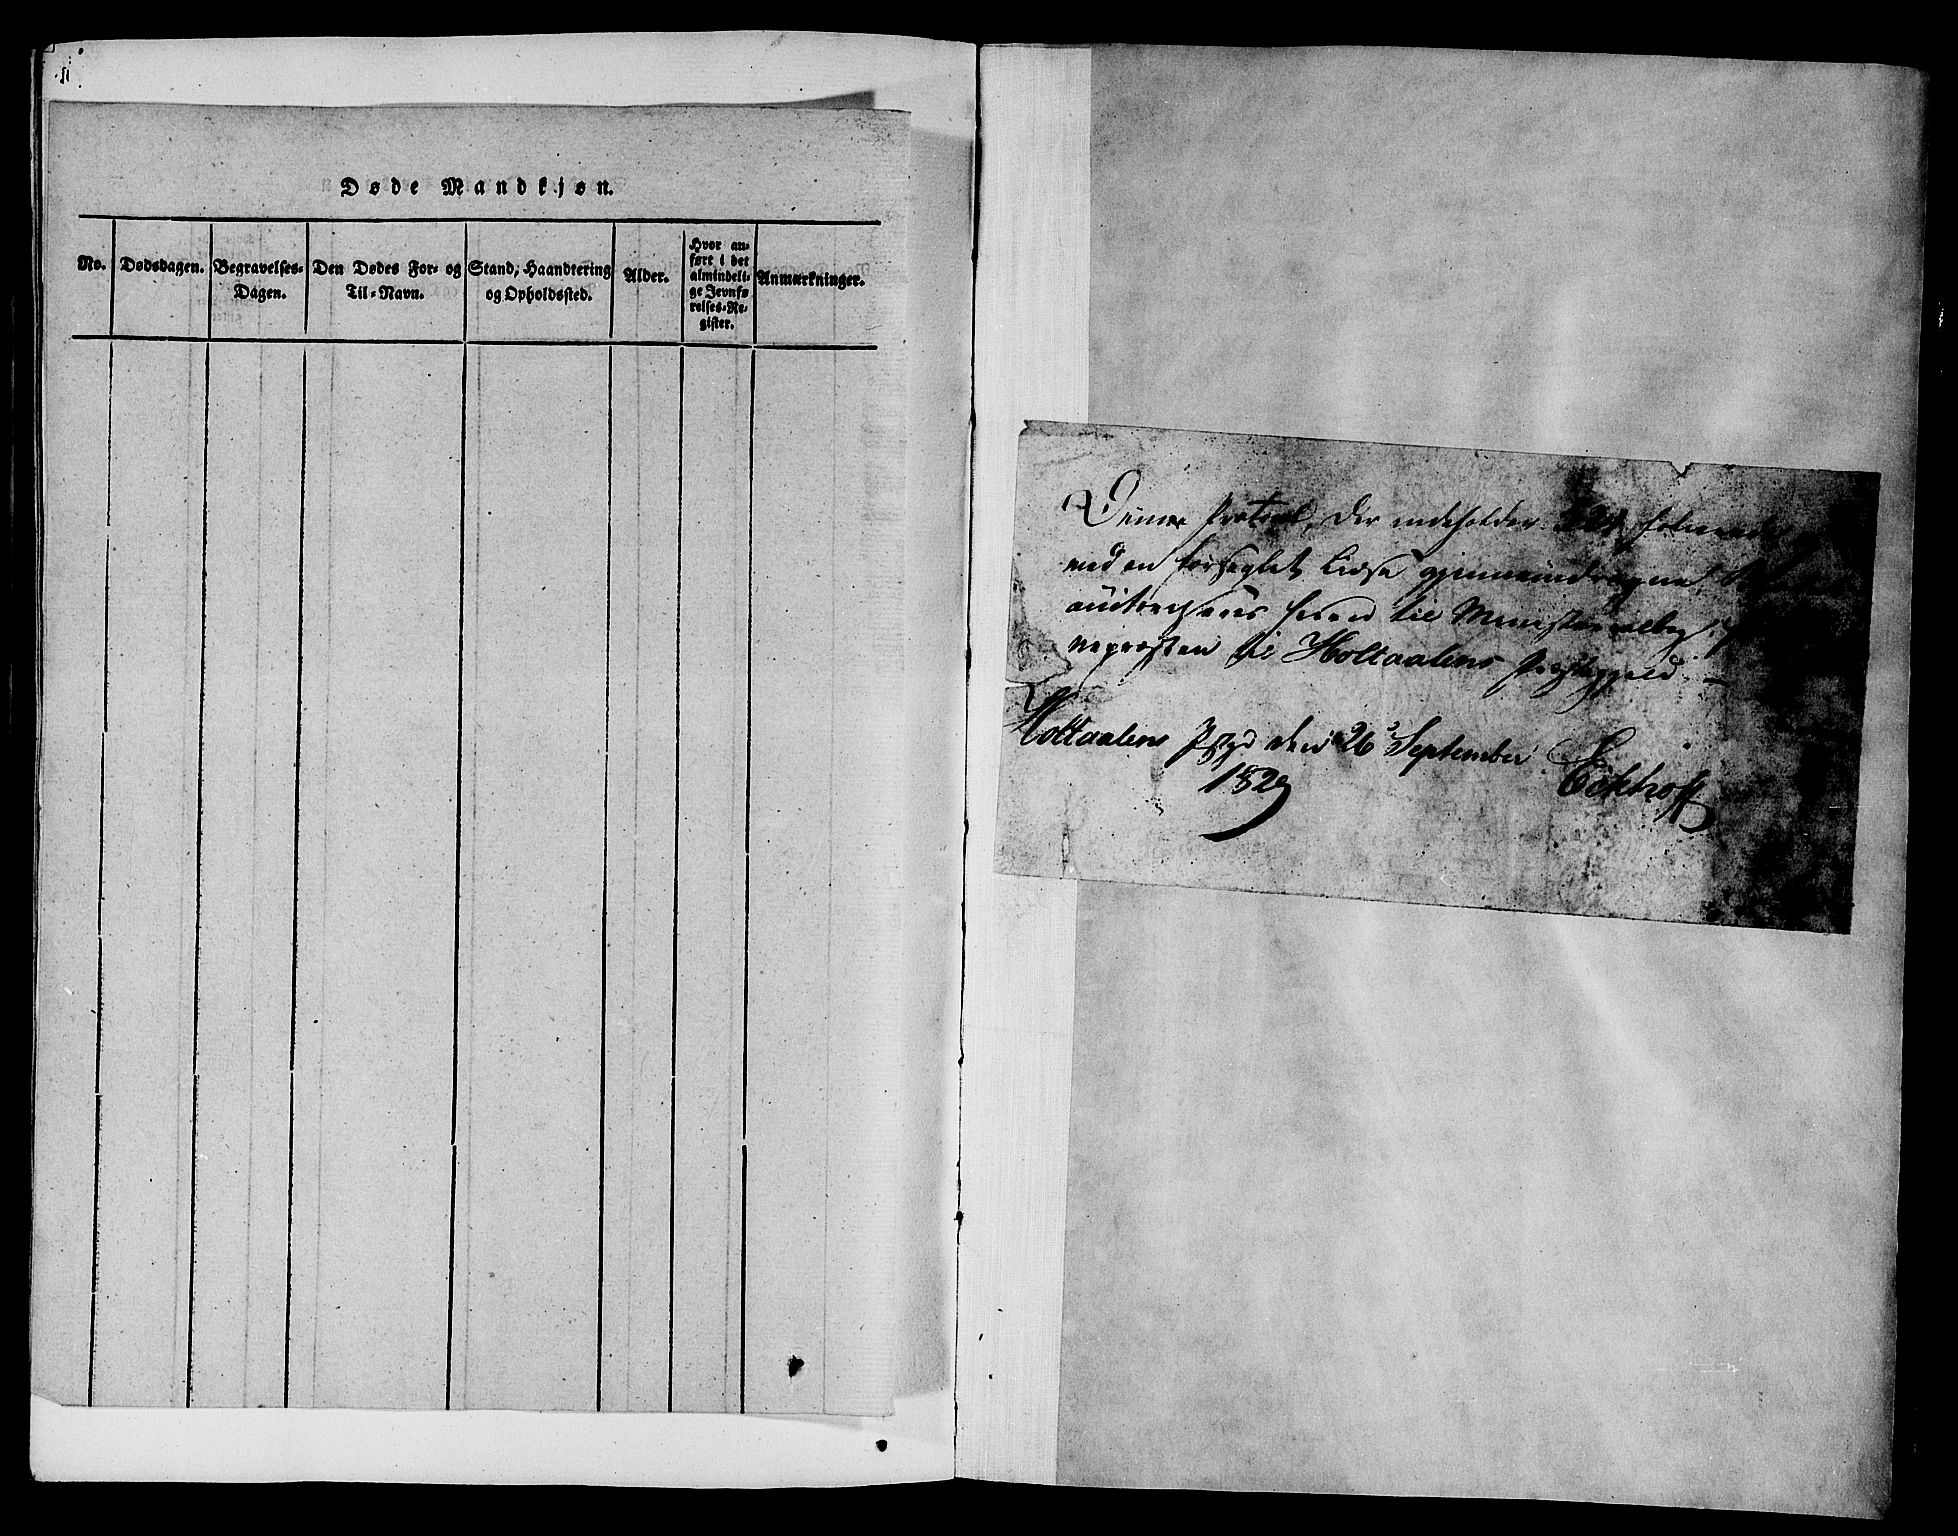 Døde Mandkjøn.
No.
Dødsdagen.
Begravelses-
Dagen.
Den Dødes For- og
Til-Navn.
Stand, Haandtering
og Opholdssted.
Alder.
Hvor an-
ført i det
almindeli-
ge Jevnfø
relses-Re-
gister.
Anmærkninger.
Denne Protocol, der indeholder
med en forseglet Lidse gjennemdragne
autoriseres herved til Ministerialbog
nepræsten til Holtaalens Præstegjeld. –
Holtaalens Pstgd den 26 September
1829
Eckhoff